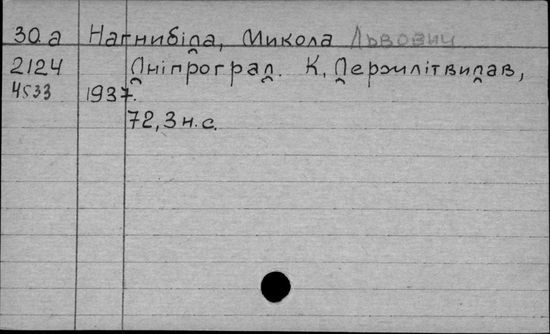 30а Нагнибіда, Микола Львович
2124 Дніпроград. К, Держлітвидав,
4533 1937.
72, 3 н.с.